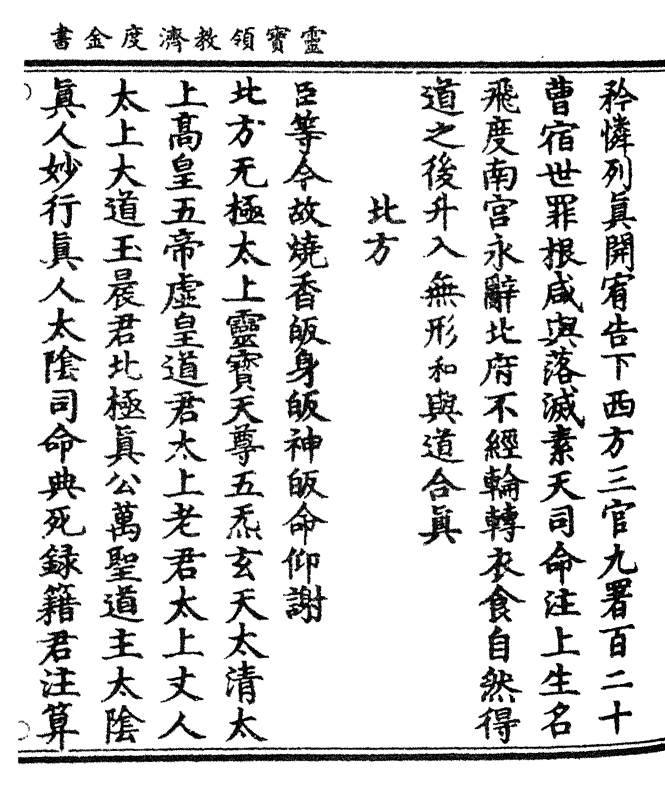 靈寶領教濟度金書
矜憐列眞開宥告下西方三官九署百二十
曹宿世罪根咸與落滅素天司命注上生名
飛度南宮永辭北府不經輪轉衣食自然得
道之後升入無形和與道合眞
北方
臣等今故燒香皈身皈神皈命仰謝
北方无極太上靈寶天尊五炁玄天太清太
上高皇五帝虛皇道君太上老君太上丈人
太上大道玉晨君北極眞公萬聖道主太陰
眞人妙行眞人太陰司命典死録籍君注算